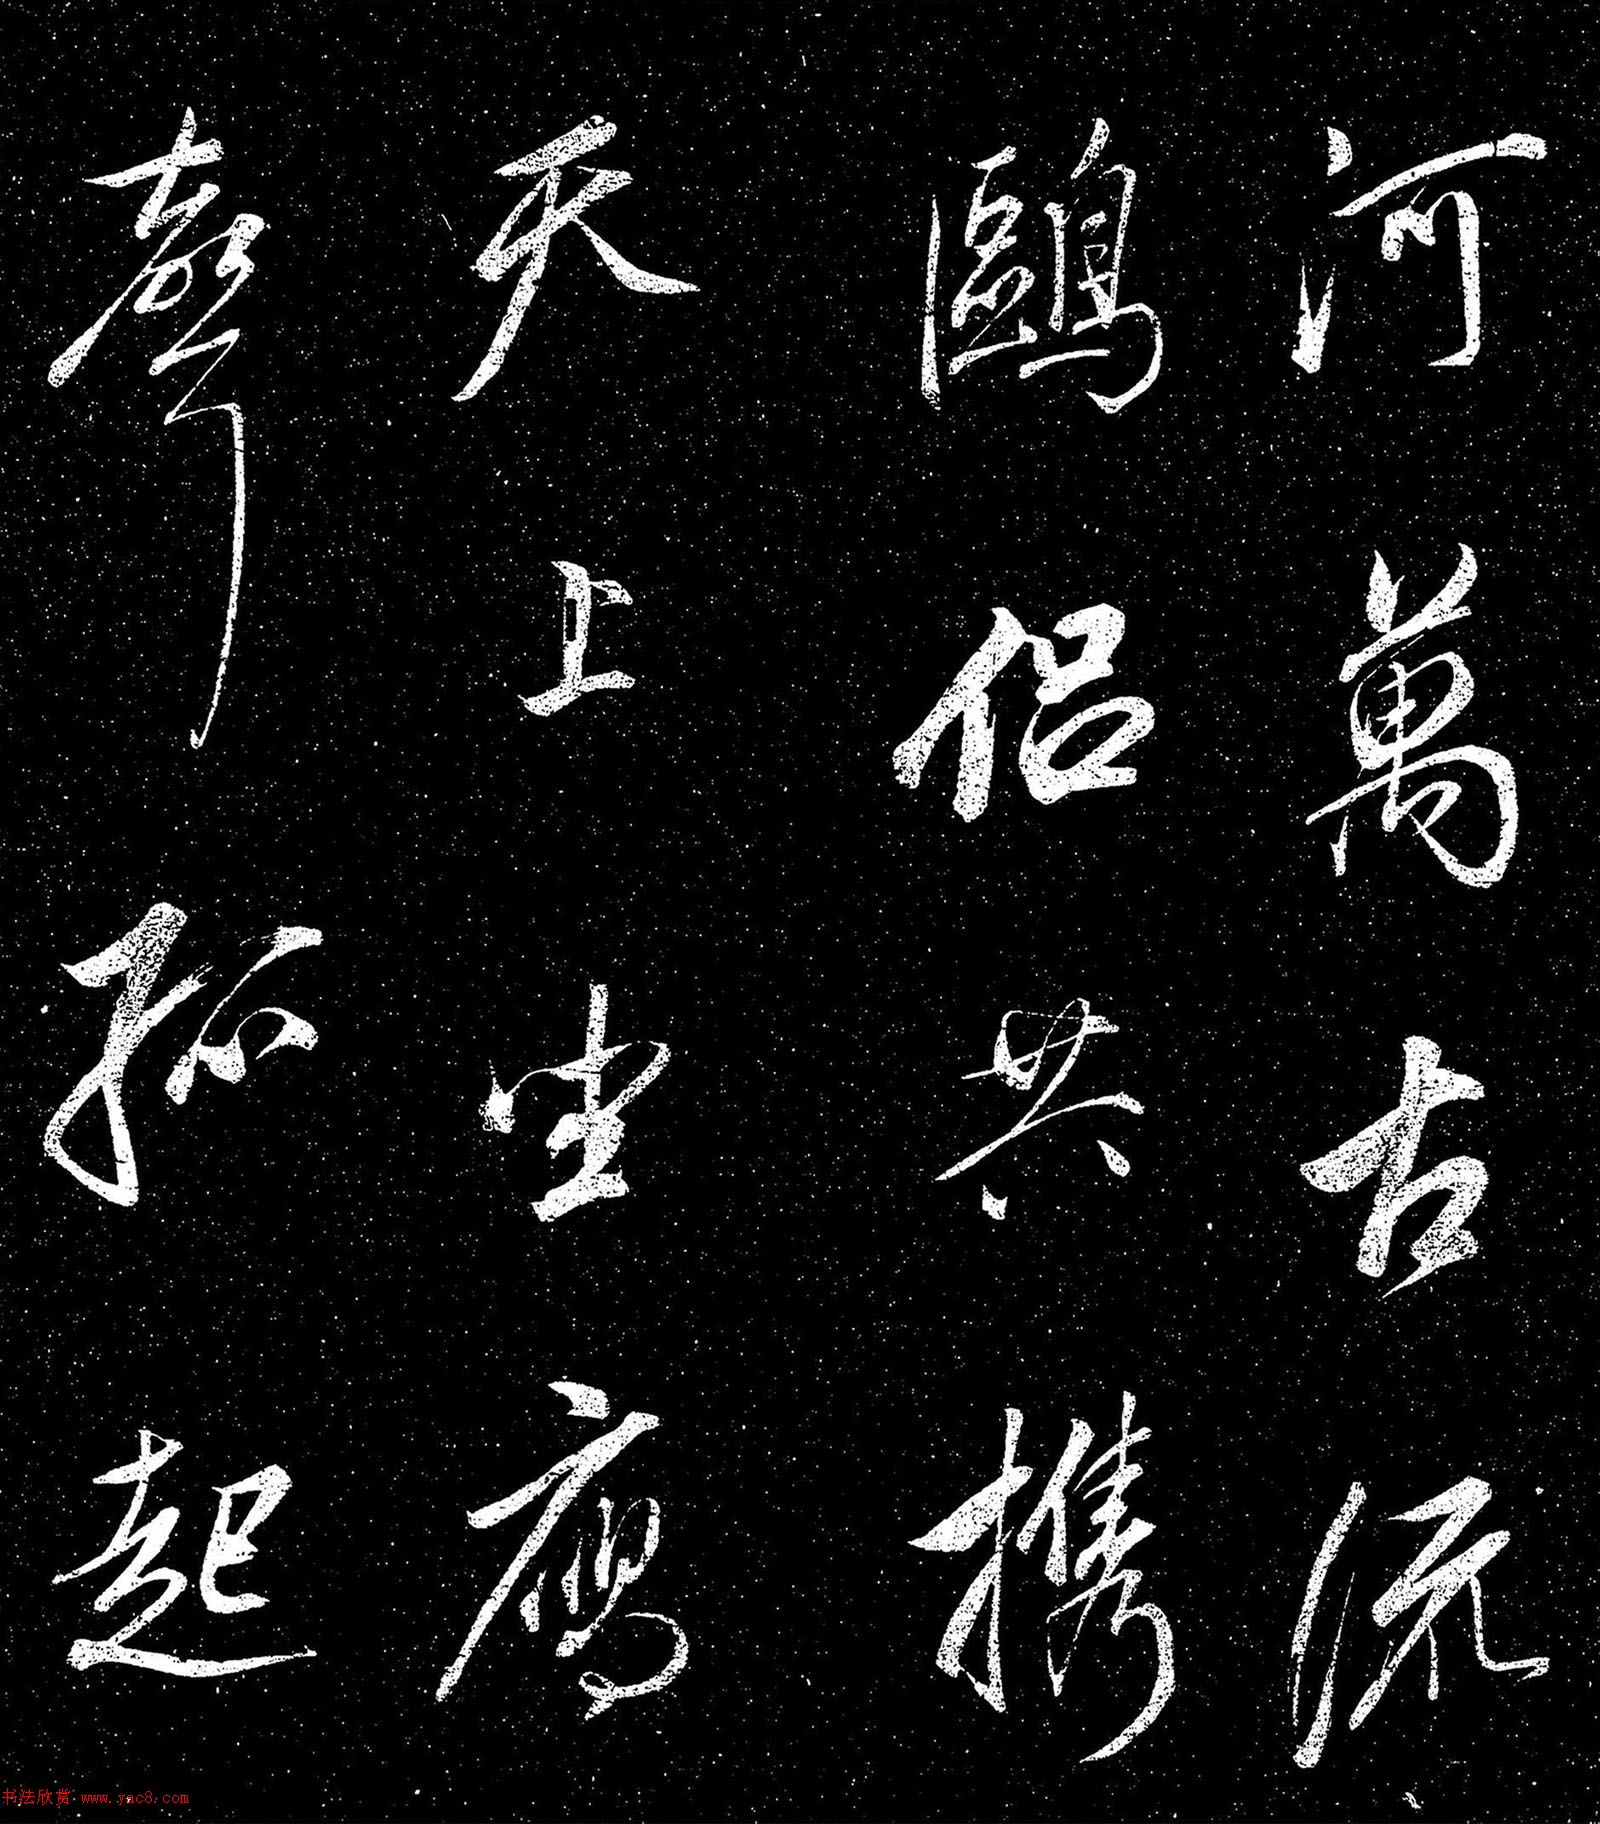 河萬古流
鷗侶共攜
天上坐鴈
聲孤起
书法欣赏 www.yac8.com